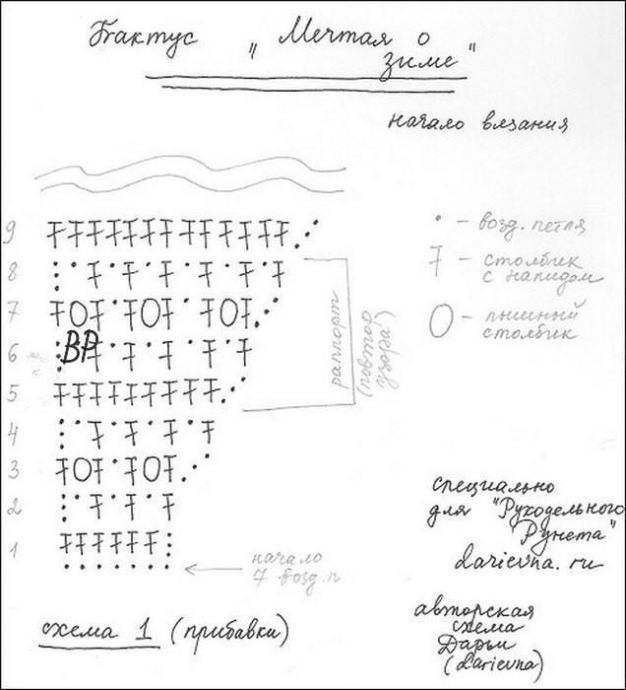 Бактус „Мечтая о
зиме"
начало вязания
9
8
7
6
5
4
3
2
1
ВР
раппорт
(повтор
узора)
• – возд. петля
Ŧ – столбик
с накидом
O – пышный
столбик
начало
7 возд.п
схема 1 (прибавки)
специально
для "Рукодельного
Рунета"
darievna.ru
авторская
схема
Дарьи
(darievna)